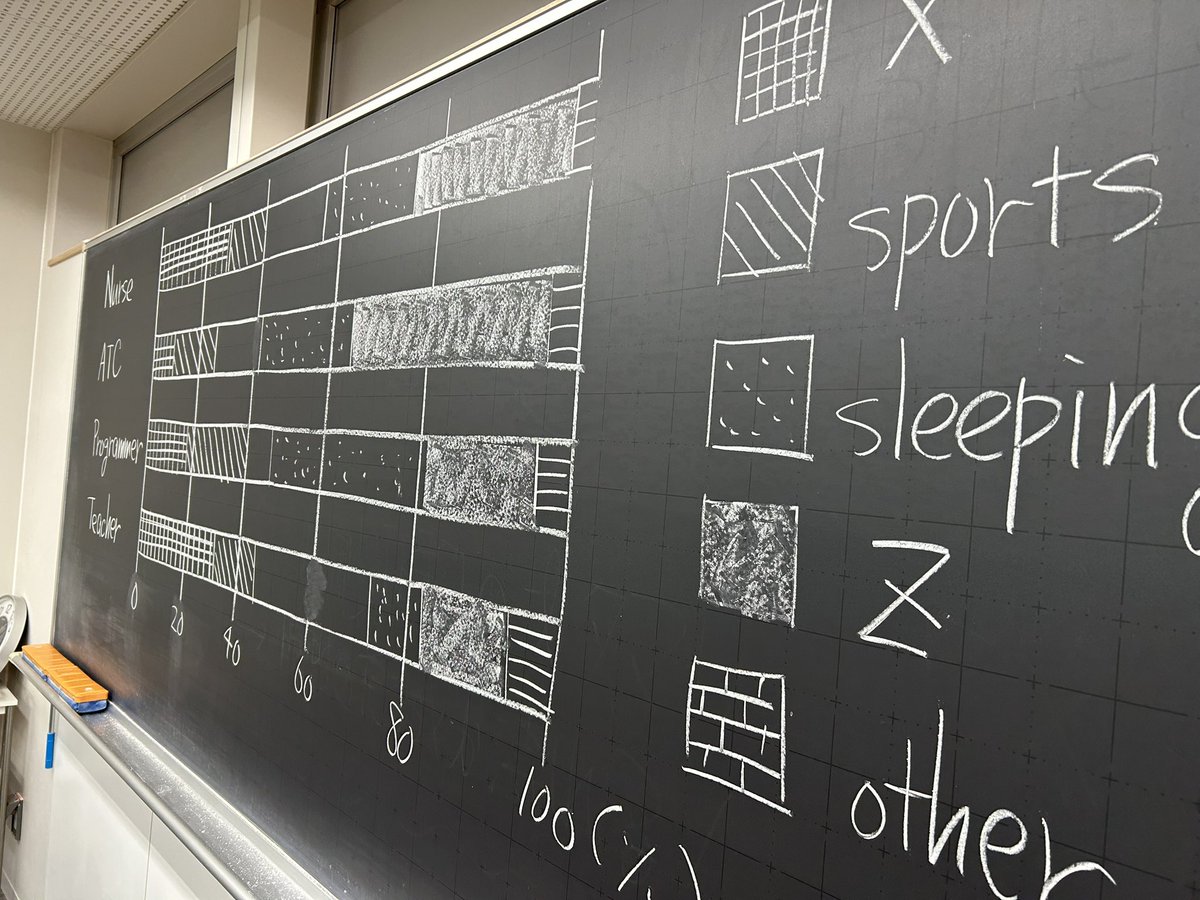 Nurse
ATC
Programmer
Teacher
0
20
40
60
80
100(%)
X
sports
sleeping
Z
other